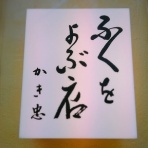 ふくを
よぶ店
かき忠